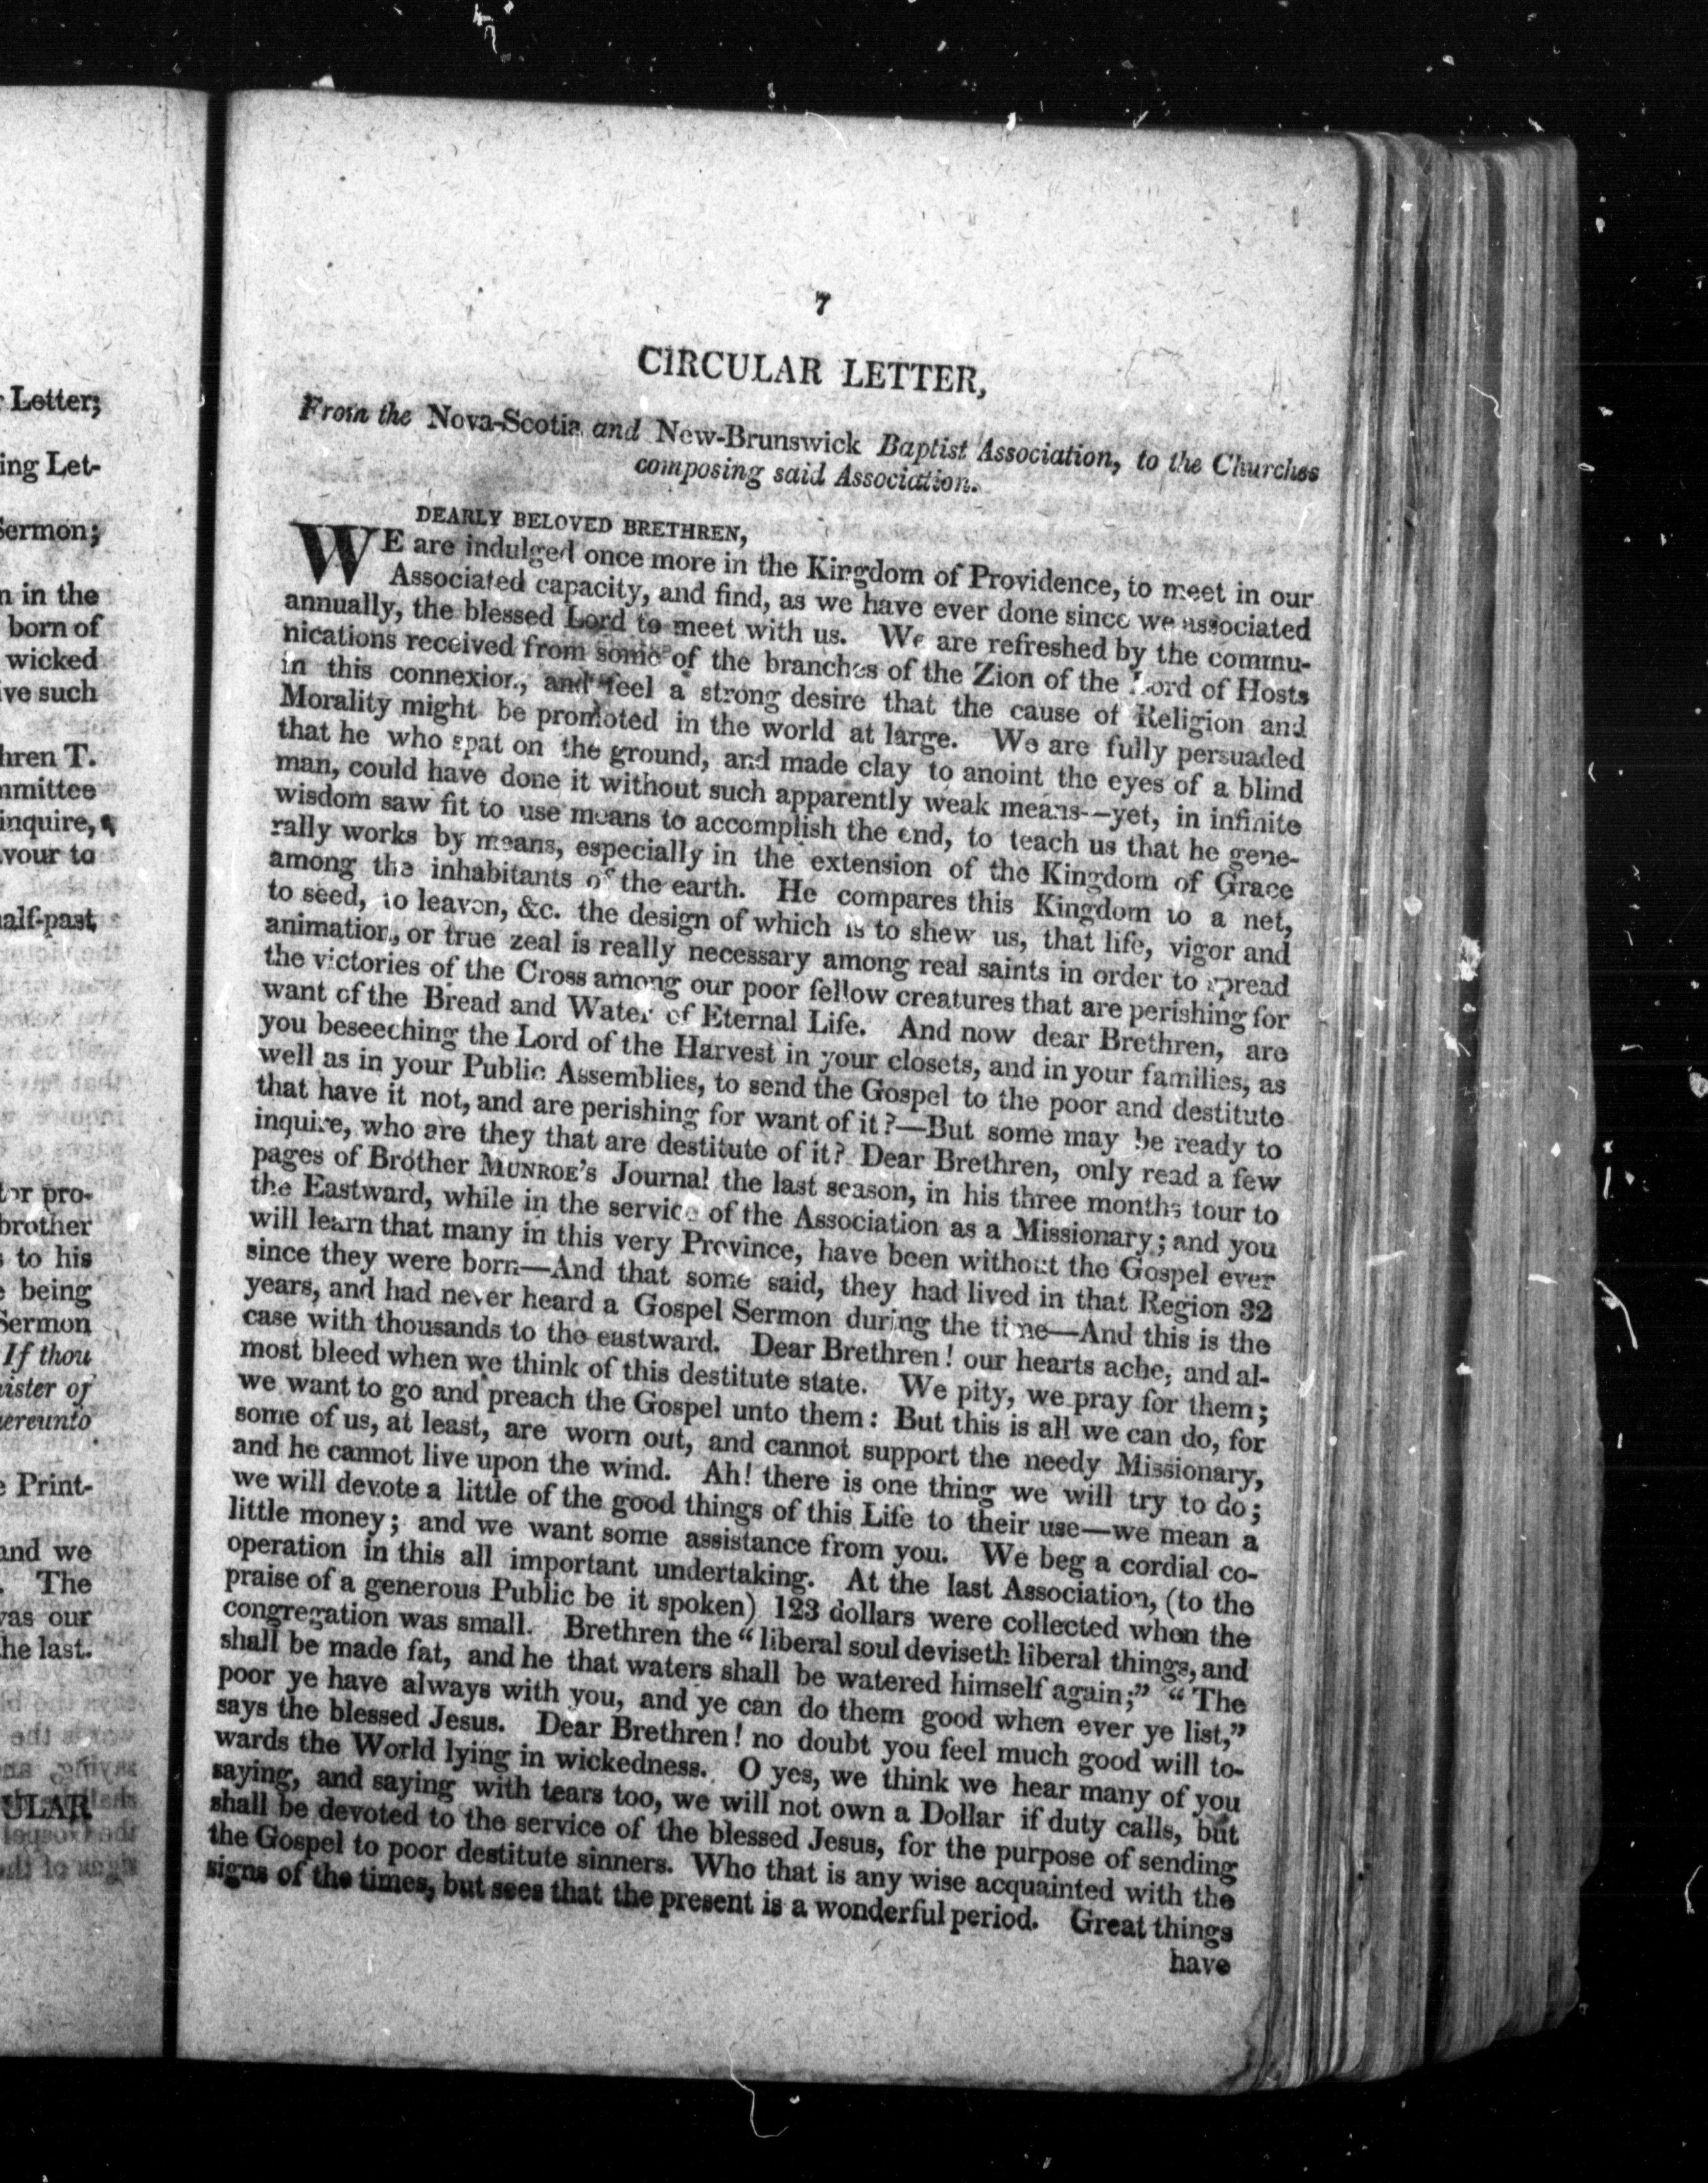 Letter;
ing Let-
Sermon;
n in the
born of
wicked
ive such
hren T.
mmittee
inquire,
vour to
half-past
tor pro-
brother
s to his
e being
Sermon
If thou
nister of
hereunto
e Print-
and we
. The
was our
the last.
ULAR
7
CIRCULAR LETTER,
From the Nova-Scotia and New-Brunswick Baptist Association, to the Churches
composing said Association.
DEARLY BELOVED BRETHREN,
WE are indulged once more in the Kingdom of Providence, to meet in our
Associated capacity, and find, as we have ever done since we associated
annually, the blessed Lord to meet with us. We are refreshed by the commu-
nications received from some of the branches of the Zion of the Lord of Hosts
in this connexion, and feel a strong desire that the cause of Religion and
Morality might be promoted in the world at large. We are fully persuaded
that he who spat on the ground, and made clay to anoint the eyes of a blind
man, could have done it without such apparently weak means--yet, in infinite
wisdom saw fit to use means to accomplish the end, to teach us that he gene-
rally works by means, especially in the extension of the Kingdom of Grace
among the inhabitants of the earth. He compares this Kingdom to a net,
to seed, to leaven, &c. the design of which is to shew us, that life, vigor and
animation, or true zeal is really necessary among real saints in order to spread
the victories of the Cross among our poor fellow creatures that are perishing for
want of the Bread and Water of Eternal Life. And now dear Brethren, are
you beseeching the Lord of the Harvest in your closets, and in your families, as
well as in your Public Assemblies, to send the Gospel to the poor and destitute
that have it not, and are perishing for want of it?—But some may be ready to
inquire, who are they that are destitute of it? Dear Brethren, only read a few
pages of Brother MUNROE'S Journal the last season, in his three months tour to
the Eastward, while in the service of the Association as a Missionary; and you
will learn that many in this very Province, have been without the Gospel ever
since they were born—And that some said, they had lived in that Region 32
years, and had never heard a Gospel Sermon during the time—And this is the
case with thousands to the eastward. Dear Brethren! our hearts ache, and al-
most bleed when we think of this destitute state. We pity, we pray for them;
we want to go and preach the Gospel unto them: But this is all we can do, for
some of us, at least, are worn out, and cannot support the needy Missionary,
and he cannot live upon the wind. Ah! there is one thing we will try to do;
we will devote a little of the good things of this Life to their use—we mean a
little money; and we want some assistance from you. We beg a cordial co-
operation in this all important undertaking. At the last Association, (to the
praise of a generous Public be it spoken) 123 dollars were collected when the
congregation was small. Brethren the "liberal soul deviseth liberal things, and
shall be made fat, and he that waters shall be watered himself again;" "The
poor ye have always with you, and ye can do them good when ever ye list,"
says the blessed Jesus. Dear Brethren! no doubt you feel much good will to-
wards the World lying in wickedness. O yes, we think we hear many of you
saying, and saying with tears too, we will not own a Dollar if duty calls, but
shall be devoted to the service of the blessed Jesus, for the purpose of sending
the Gospel to poor destitute sinners. Who that is any wise acquainted with the
signs of the times, but sees that the present is a wonderful period. Great things
have